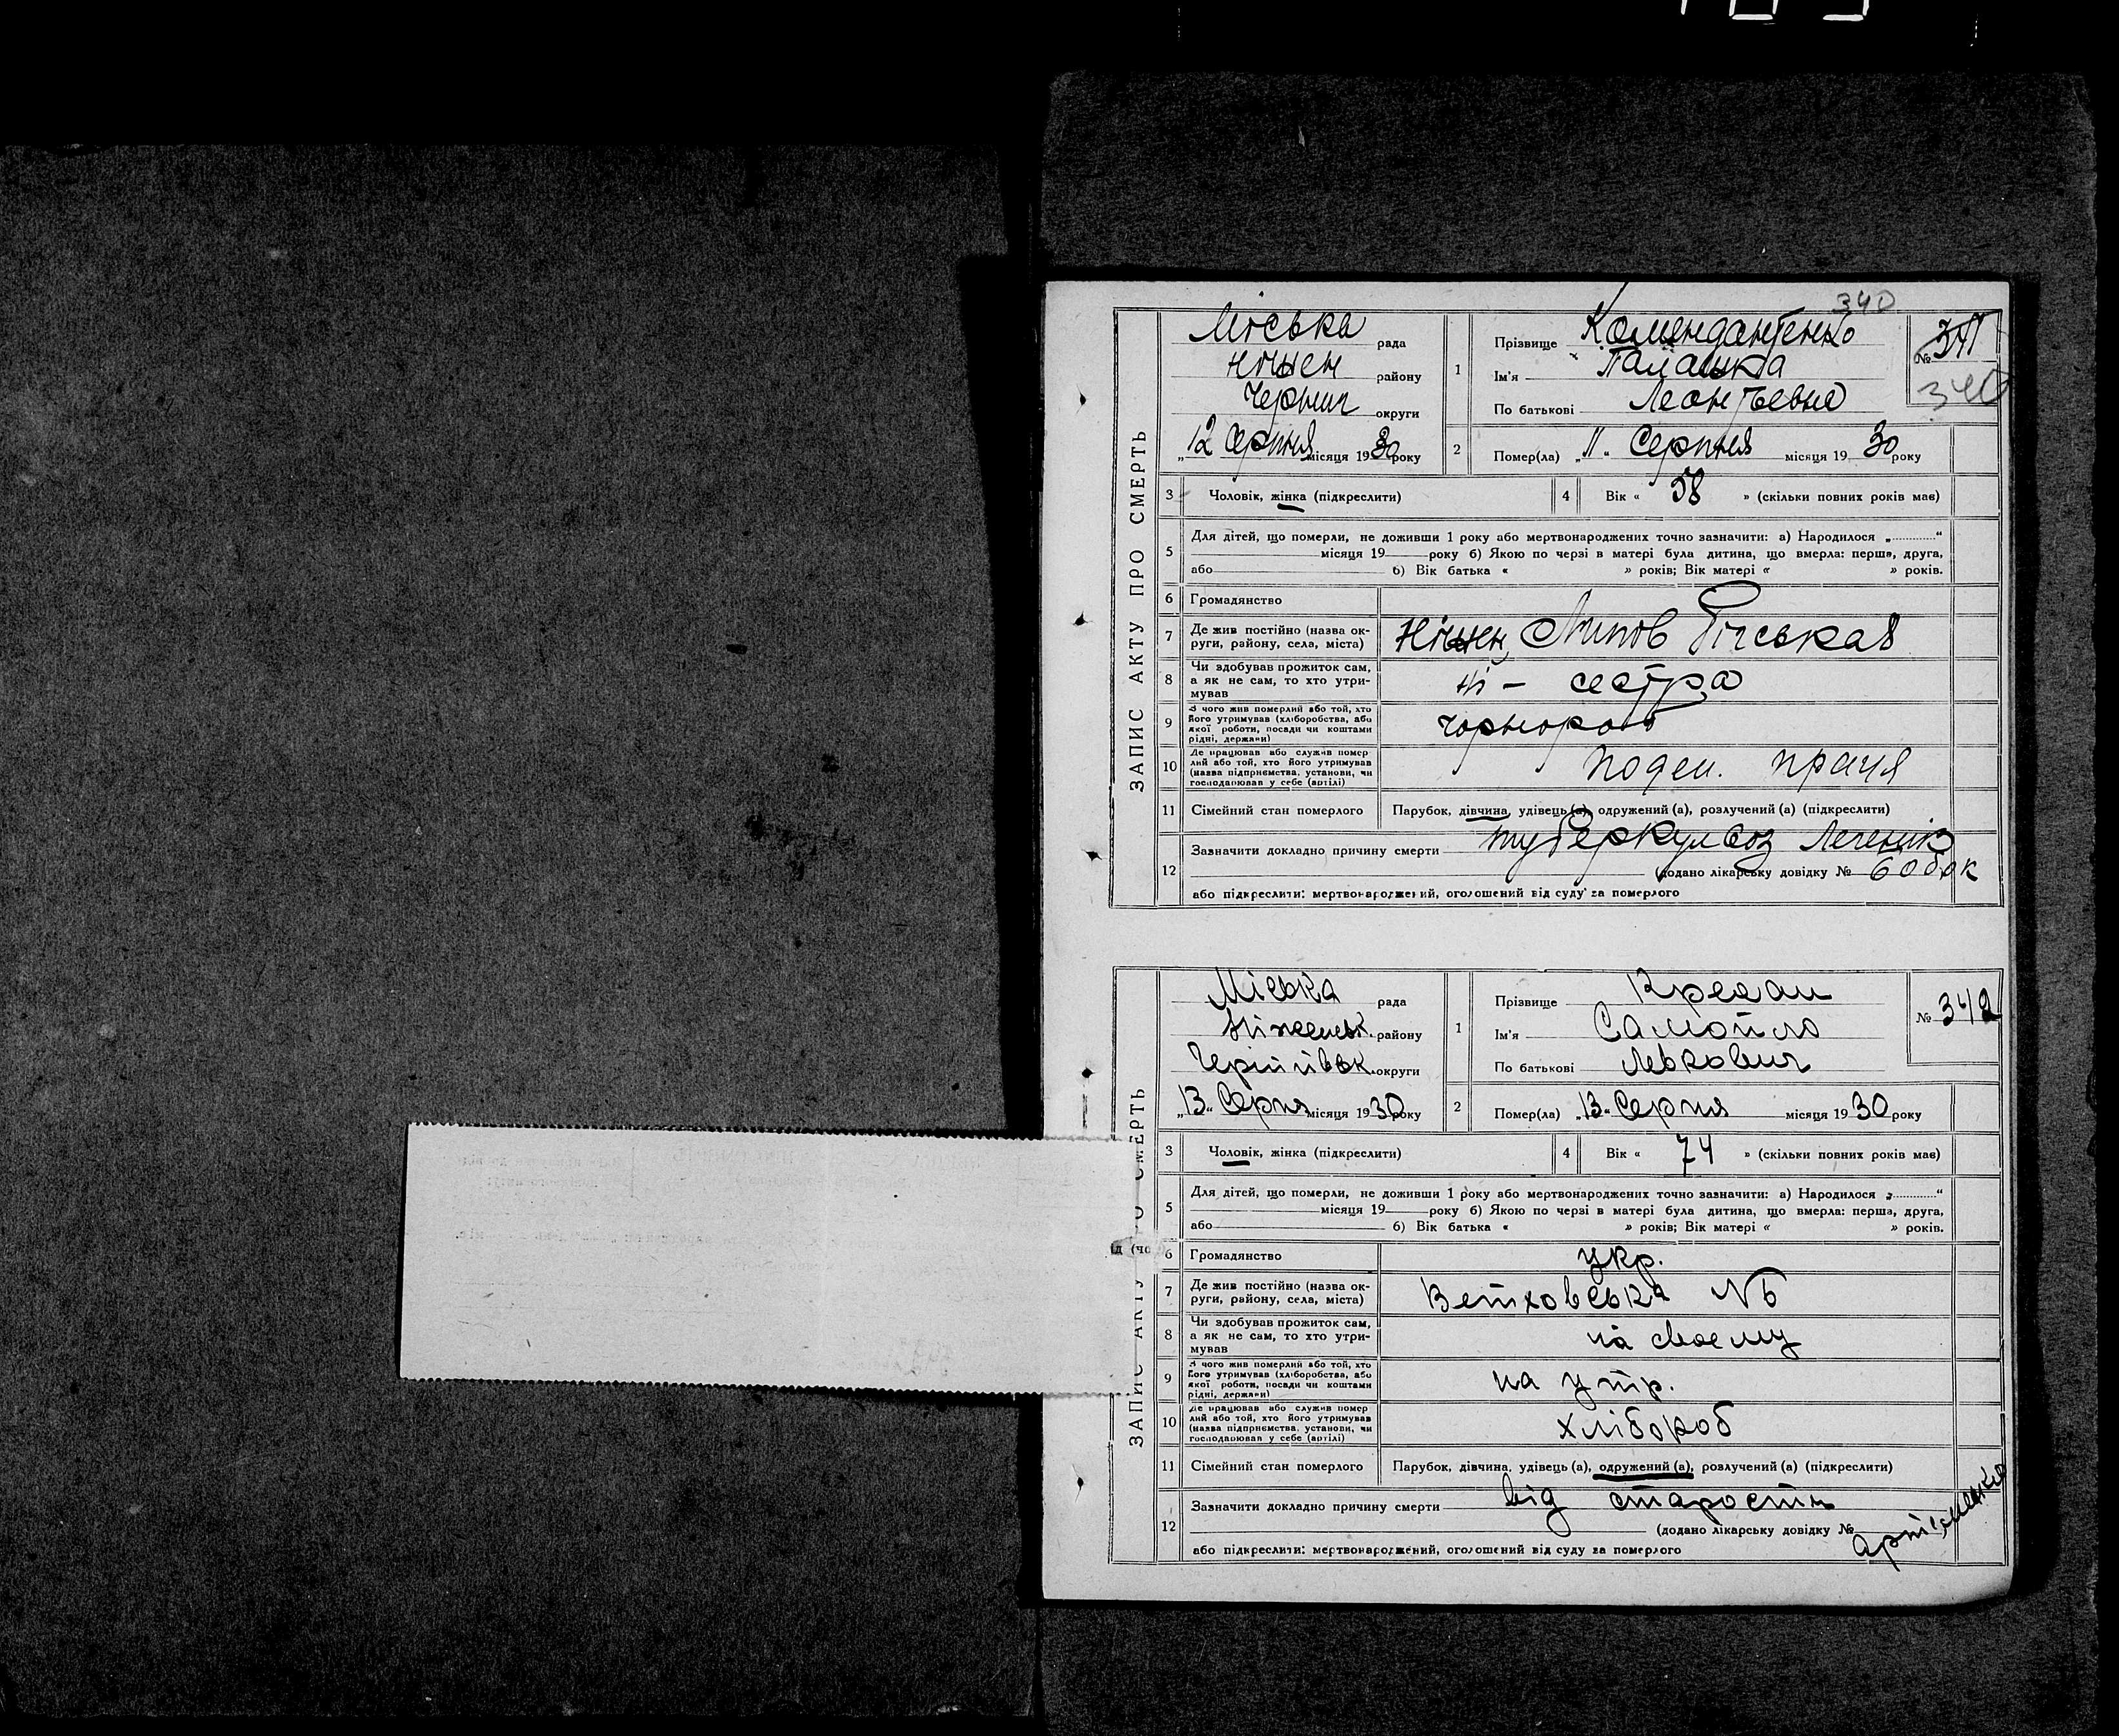 340
ЗАПИС АКТУ ПРО СМЕРТЬ
Міська рада
Ніжен району
Черниг округи
„12 Серпня місяця 1930 року
1
Прізвище Комендантенко
Ім'я Палажка
По батькові Леонтьевна
№ 341
340
2
Помер(ла) „11“ Серпня місяця 19 30 року
3 Чоловік, жінка (підкреслити)
4 Вік « 58 » (скільки повних років має)
5
Для дітей, що померли, не доживши 1 року або мертвонароджених точно зазначити: а) Народилося „ “
місяця 19 року б) Якою по черзі в матері була дитина, що вмерла: перша, друга,
або б) Вік батька « » років; Вік матері « » років.
6 Громадянство
7 Де жив постійно (назва ок-
руги, району, села, міста)
Ніжен, Липов Рігськая
8 Чи здобував прожиток сам,
а як не сам, то хто утри-
мував
ні – сестра
9 З чого жив померлий або той, хто
його утримував (хліборобства, або
якої роботи, посади чи коштами
рідні, держави)
чорнороб
10 Де працював або служив помер
лий або той, хто його утримував
(назва підприємства, установи, чи
господарював у себе (артілі)
поден. праця
11 Сімейний стан померлого
Парубок, дівчина, удівець (а), одружений (а), розлучений (а) (підкреслити)
12
Зазначити докладно причину смерти туберкульоз Легенів
(додано лікарську довідку №
або підкреслити: мертвонароджений, оголошений від суду за померлого
ЗАПИС АКТУ ПРО СМЕРТЬ
Міська рада
Ніженськ. району
Чернігівськ. округи
„13“ Серпня місяця 1930 року
1
Прізвище
Ім'я Самойло
По батькові Левкович
№ 342
2
Помер(ла) „13“ Серпня місяця 1930 року
3 Чоловік, жінка (підкреслити)
4 Вік « 74 » (скільки повних років має)
5
Для дітей, що померли, не доживши 1 року або мертвонароджених точно зазначити: а) Народилося „ “
місяця 19 року б) Якою по черзі в матері була дитина, що вмерла: перша, друга,
або б) Вік батька « » років; Вік матері « » років.
ід (чо
6 Громадянство укр.
7 Де жив постійно (назва ок-
руги, району, села, міста)
Ветховська №
8 Чи здобував прожиток сам,
а як не сам, то хто утри-
мував
на своєму
9 З чого жив померлий або той, хто
його утримував (хліборобства, або
якої роботи, посади чи коштами
рідні, держави)
на утр.
10 Де працював або служив помер
лий або той, хто його утримував
(назва підприємства, установи, чи
господарював у себе (артілі)
хлібороб
11 Сімейний стан померлого
Парубок, дівчина, удівець (а), одружений (а), розлучений (а) (підкреслити)
12
Зазначити докладно причину смерти від старости
(додано лікарську довідку №
або підкреслити: мертвонароджений, оголошений від суду за померлого